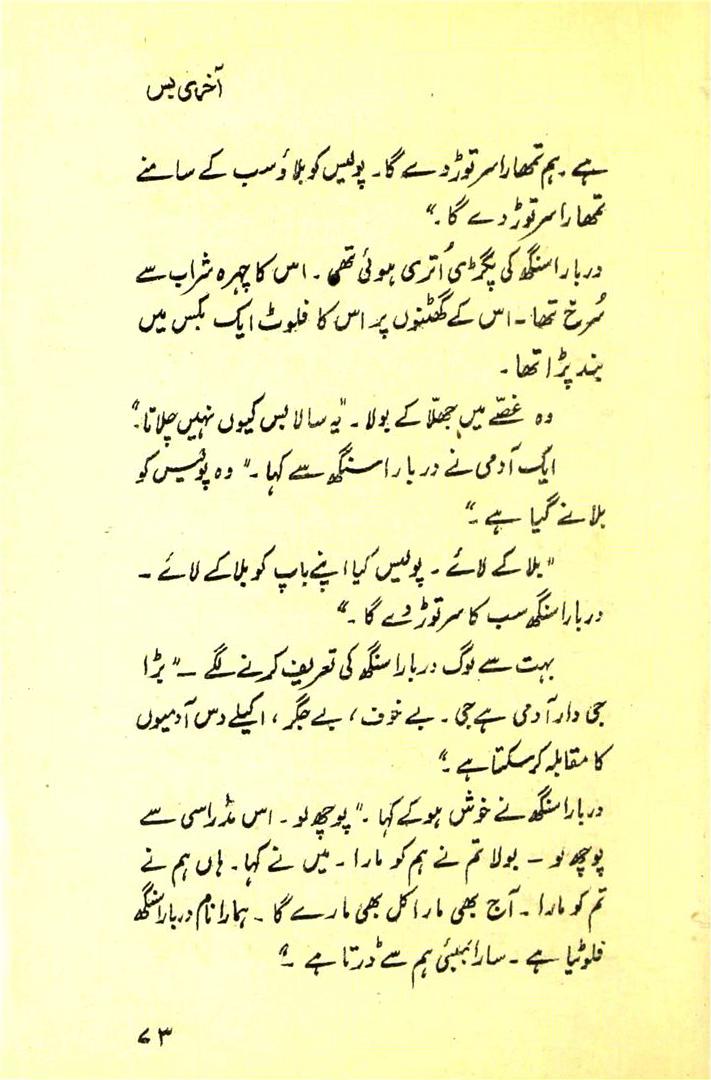 آخری بس
ہے ہم تمھارا سر توڑ دے گا۔ پولیس کو بلاؤ سب کے سامنے
تمھارا سر توڑ دے گا۔"
دربارا سنگھ کی پگڑی اُتری ہوئی تھی۔ اس کا چہرہ شراب سے
سُرخ تھا۔ اس کے گھٹنوں پر اس کا فلوٹ ایک بکس میں
بند پڑا تھا۔
وہ غصّے میں جھلّا کے بولا۔ "یہ سالا بس کیوں نہیں چلاتا۔"
ایک آدمی نے دربارا سنگھ سے کہا۔ "وہ پولیس کو
بلانے گیا ہے۔"
"بلا کے لائے۔ پولیس کیا اپنے باپ کو بلا کے لائے۔
دربارا سنگھ سب کا سر توڑ دے گا۔"
بہت سے لوگ دربارا سنگھ کی تعریف کرنے لگے۔ "بڑا
جی دار آدمی ہے جی۔ بے خوف، بے جگر، اکیلے دس آدمیوں
کا مقابلہ کر سکتا ہے۔"
دربارا سنگھ نے خوش ہو کے کہا۔ "پوچھ لو۔ اس مڈراسی سے
پوچھ لو۔ بولا تم نے ہم کو مارا۔ میں نے کہا۔ ہاں ہم نے
تم کو مارا۔ آج بھی مارا کل بھی مارے گا۔ ہمارا نام دربارا سنگھ
فلوٹیا ہے۔ سارا بمبئی ہم سے ڈرتا ہے۔"
۷۳